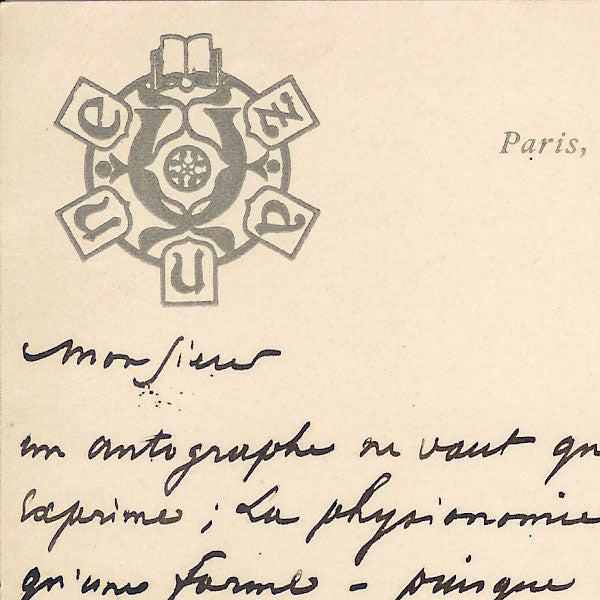 Uzanne
Paris,
Monsieur
un autographe ne vaut qu
exprime ; La physionomie
qu'une forme – puisque